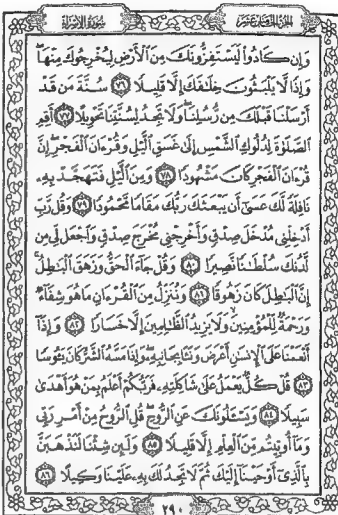 سورة الإسراء
الجزء الخامس عشر
وَإِن كَادُوا۟ لَيَسْتَفِزُّونَكَ مِنَ ٱلْأَرْضِ لِيُخْرِجُوكَ مِنْهَا ۖ
وَإِذًا لَّا يَلْبَثُونَ خِلَـٰفَكَ إِلَّا قَلِيلًا ٧٦ سُنَّةَ مَن قَدْ
أَرْسَلْنَا قَبْلَكَ مِن رُّسُلِنَا ۖ وَلَا تَجِدُ لِسُنَّتِنَا تَحْوِيلًا ٧٧ أَقِمِ
ٱلصَّلَوٰةَ لِدُلُوكِ ٱلشَّمْسِ إِلَىٰ غَسَقِ ٱلَّيْلِ وَقُرْءَانَ ٱلْفَجْرِ ۖ إِنَّ
قُرْءَانَ ٱلْفَجْرِ كَانَ مَشْهُودًا ٧٨ وَمِنَ ٱلَّيْلِ فَتَهَجَّدْ بِهِۦ
نَافِلَةً لَّكَ عَسَىٰٓ أَن يَبْعَثَكَ رَبُّكَ مَقَامًا مَّحْمُودًا ٧٩ وَقُل رَّبِّ
أَدْخِلْنِى مُدْخَلَ صِدْقٍ وَأَخْرِجْنِى مُخْرَجَ صِدْقٍ وَٱجْعَل لِّى مِن
لَّدُنكَ سُلْطَـٰنًا نَّصِيرًا ٨٠ وَقُلْ جَآءَ ٱلْحَقُّ وَزَهَقَ ٱلْبَـٰطِلُ ۚ
إِنَّ ٱلْبَـٰطِلَ كَانَ زَهُوقًا ٨١ وَنُنَزِّلُ مِنَ ٱلْقُرْءَانِ مَا هُوَ شِفَآءٌ
وَرَحْمَةٌ لِّلْمُؤْمِنِينَ ۙ وَلَا يَزِيدُ ٱلظَّـٰلِمِينَ إِلَّا خَسَارًا ٨٢ وَإِذَآ
أَنْعَمْنَا عَلَى ٱلْإِنسَـٰنِ أَعْرَضَ وَنَـَٔا بِجَانِبِهِۦ ۖ وَإِذَا مَسَّهُ ٱلشَّرُّ كَانَ يَـُٔوسًا
٨٣ قُلْ كُلٌّ يَعْمَلُ عَلَىٰ شَاكِلَتِهِۦ فَرَبُّكُمْ أَعْلَمُ بِمَنْ هُوَ أَهْدَىٰ
سَبِيلًا ٨٤ وَيَسْـَٔلُونَكَ عَنِ ٱلرُّوحِ ۖ قُلِ ٱلرُّوحُ مِنْ أَمْرِ رَبِّى
وَمَآ أُوتِيتُم مِّنَ ٱلْعِلْمِ إِلَّا قَلِيلًا ٨٥ وَلَئِن شِئْنَا لَنَذْهَبَنَّ
بِٱلَّذِىٓ أَوْحَيْنَآ إِلَيْكَ ثُمَّ لَا تَجِدُ لَكَ بِهِۦ عَلَيْنَا وَكِيلًا ٨٦
٢٩٠